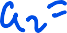 a₂=